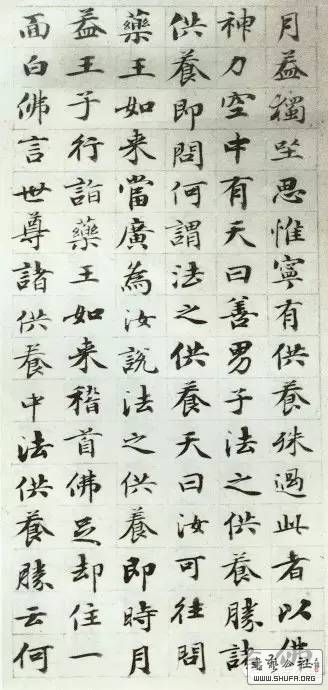 月蓋獨坐思惟寧有供養殊過此者以佛
神力空中有天曰善男子法之供養勝諸
供養即問何謂法之供養天曰汝可往問
藥王如来當廣為汝說法之供養即時月
蓋王子行詣藥王如来稽首佛足却住一
面白佛言世尊諸供養中法供養勝云何
WWW.SHUFA.ORG